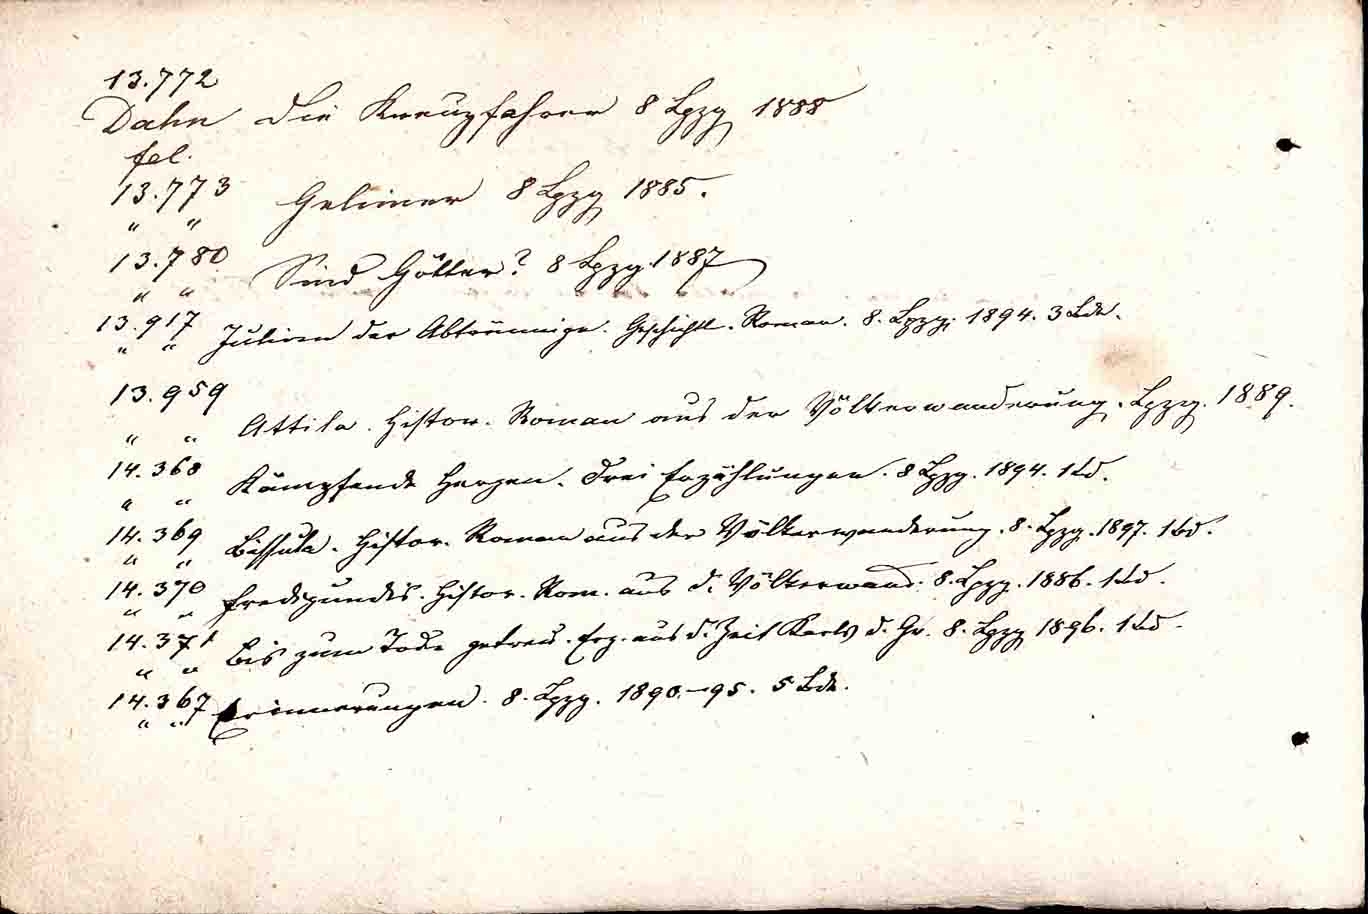 13.772
Dahn Die Kreuzfahrer 8 Lpzg 1888
fel.
13.773 Gelimer 8 Lpzg 1885.
" "
13.780 Sind Götter? 8 Lpzg. 1887
" "
13.917 Julian der Abtrünnige. Geschichtl. Roman. 8. Lpzg. 1894. 3 Bde.
" "
13.959
" " Attila. Histor. Roman aus der Völkerwanderung. Lpzg. 1889.
14.368 Kämpfende Herzen. Drei Erzählungen. 8 Lpzg. 1894. 1 Bd.
" "
14.369 Bissula. Histor. Roman aus der Völkerwanderung. 8. Lpzg. 1897. 1 Bd.
" "
14.370 Fredigundis. Histor. Rom. aus d. Völkerwand. 8. Lpzg. 1886. 1 Bd.
" "
14.371 Bis zum Tode getreu. Erz. aus d. Zeit Karls d. Gr. 8. Lpzg 1896. 1 Bd.
" "
14.367 Erinnerungen. 8. Lpzg. 1890.-95. 5 Bde.
" "